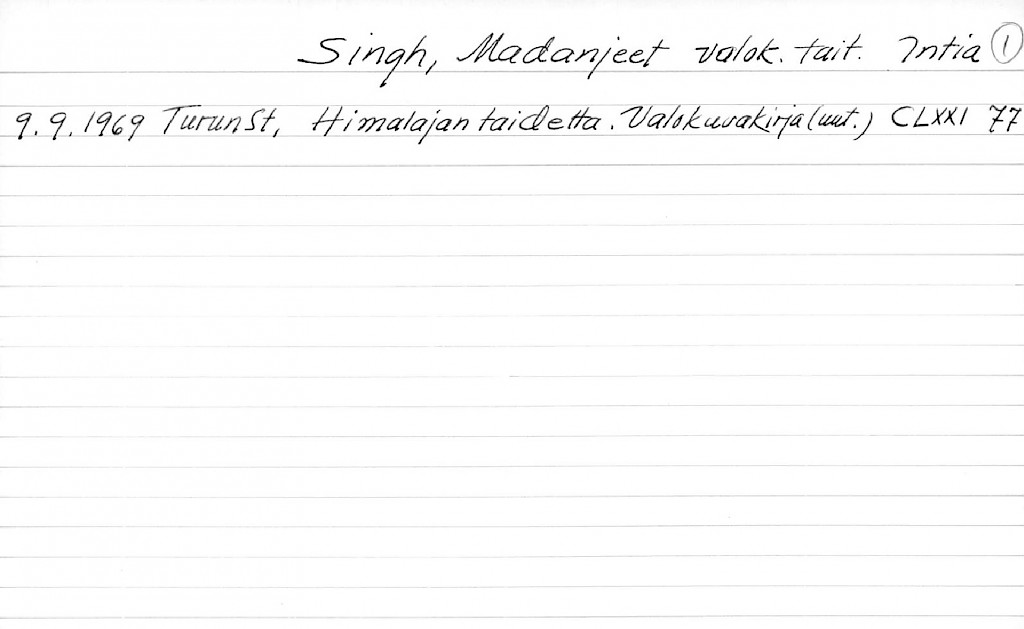 Singh, Madanjeet valok. tait. Intia 1
9.9.1969 TurunSt, Himalajan taidetta. Valokuvakirja (uut.) CLXXI 77